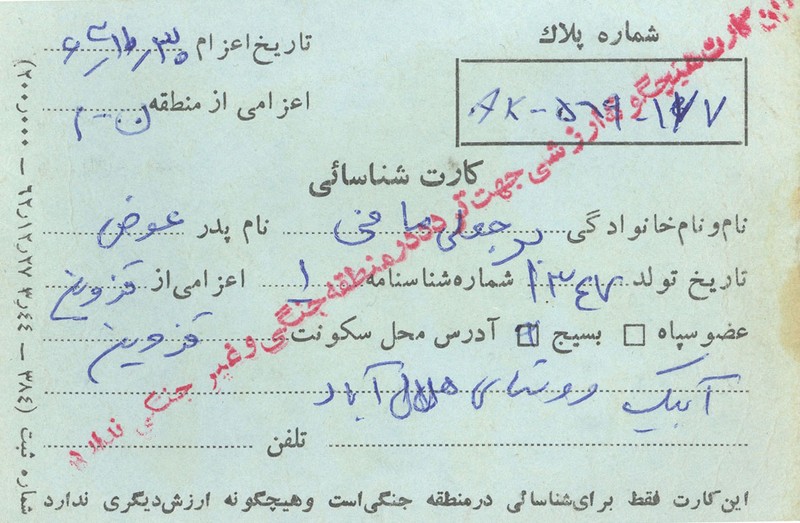 شماره پلاك
تاریخ اعزام
AK-569-177
اعزامی از منطقه
کارت شناسائی
نام ونام خانوادگی رجبعلی صافی نام پدر عوض
تاریخ تولد ۱۳۴۷ شماره شناسنامه ۱ اعزامی از قزوین
عضو سپاه بسیج آدرس محل سکونت قزوین
آبیک روستای هلال آباد
تلفن
این کارت فقط برای شناسائی درمنطقه جنگی است وهیچگونه ارزش دیگری ندارد
کارت هیچگونه ارزشی جهت تردد در منطقه جنگی و غیر جنگی ندارد
شماره ثبت (۳۸۴ – ۳٫۴۴ ۶۲٫۱۲٫۲۷ – ۲۰۰٫۰۰۰)